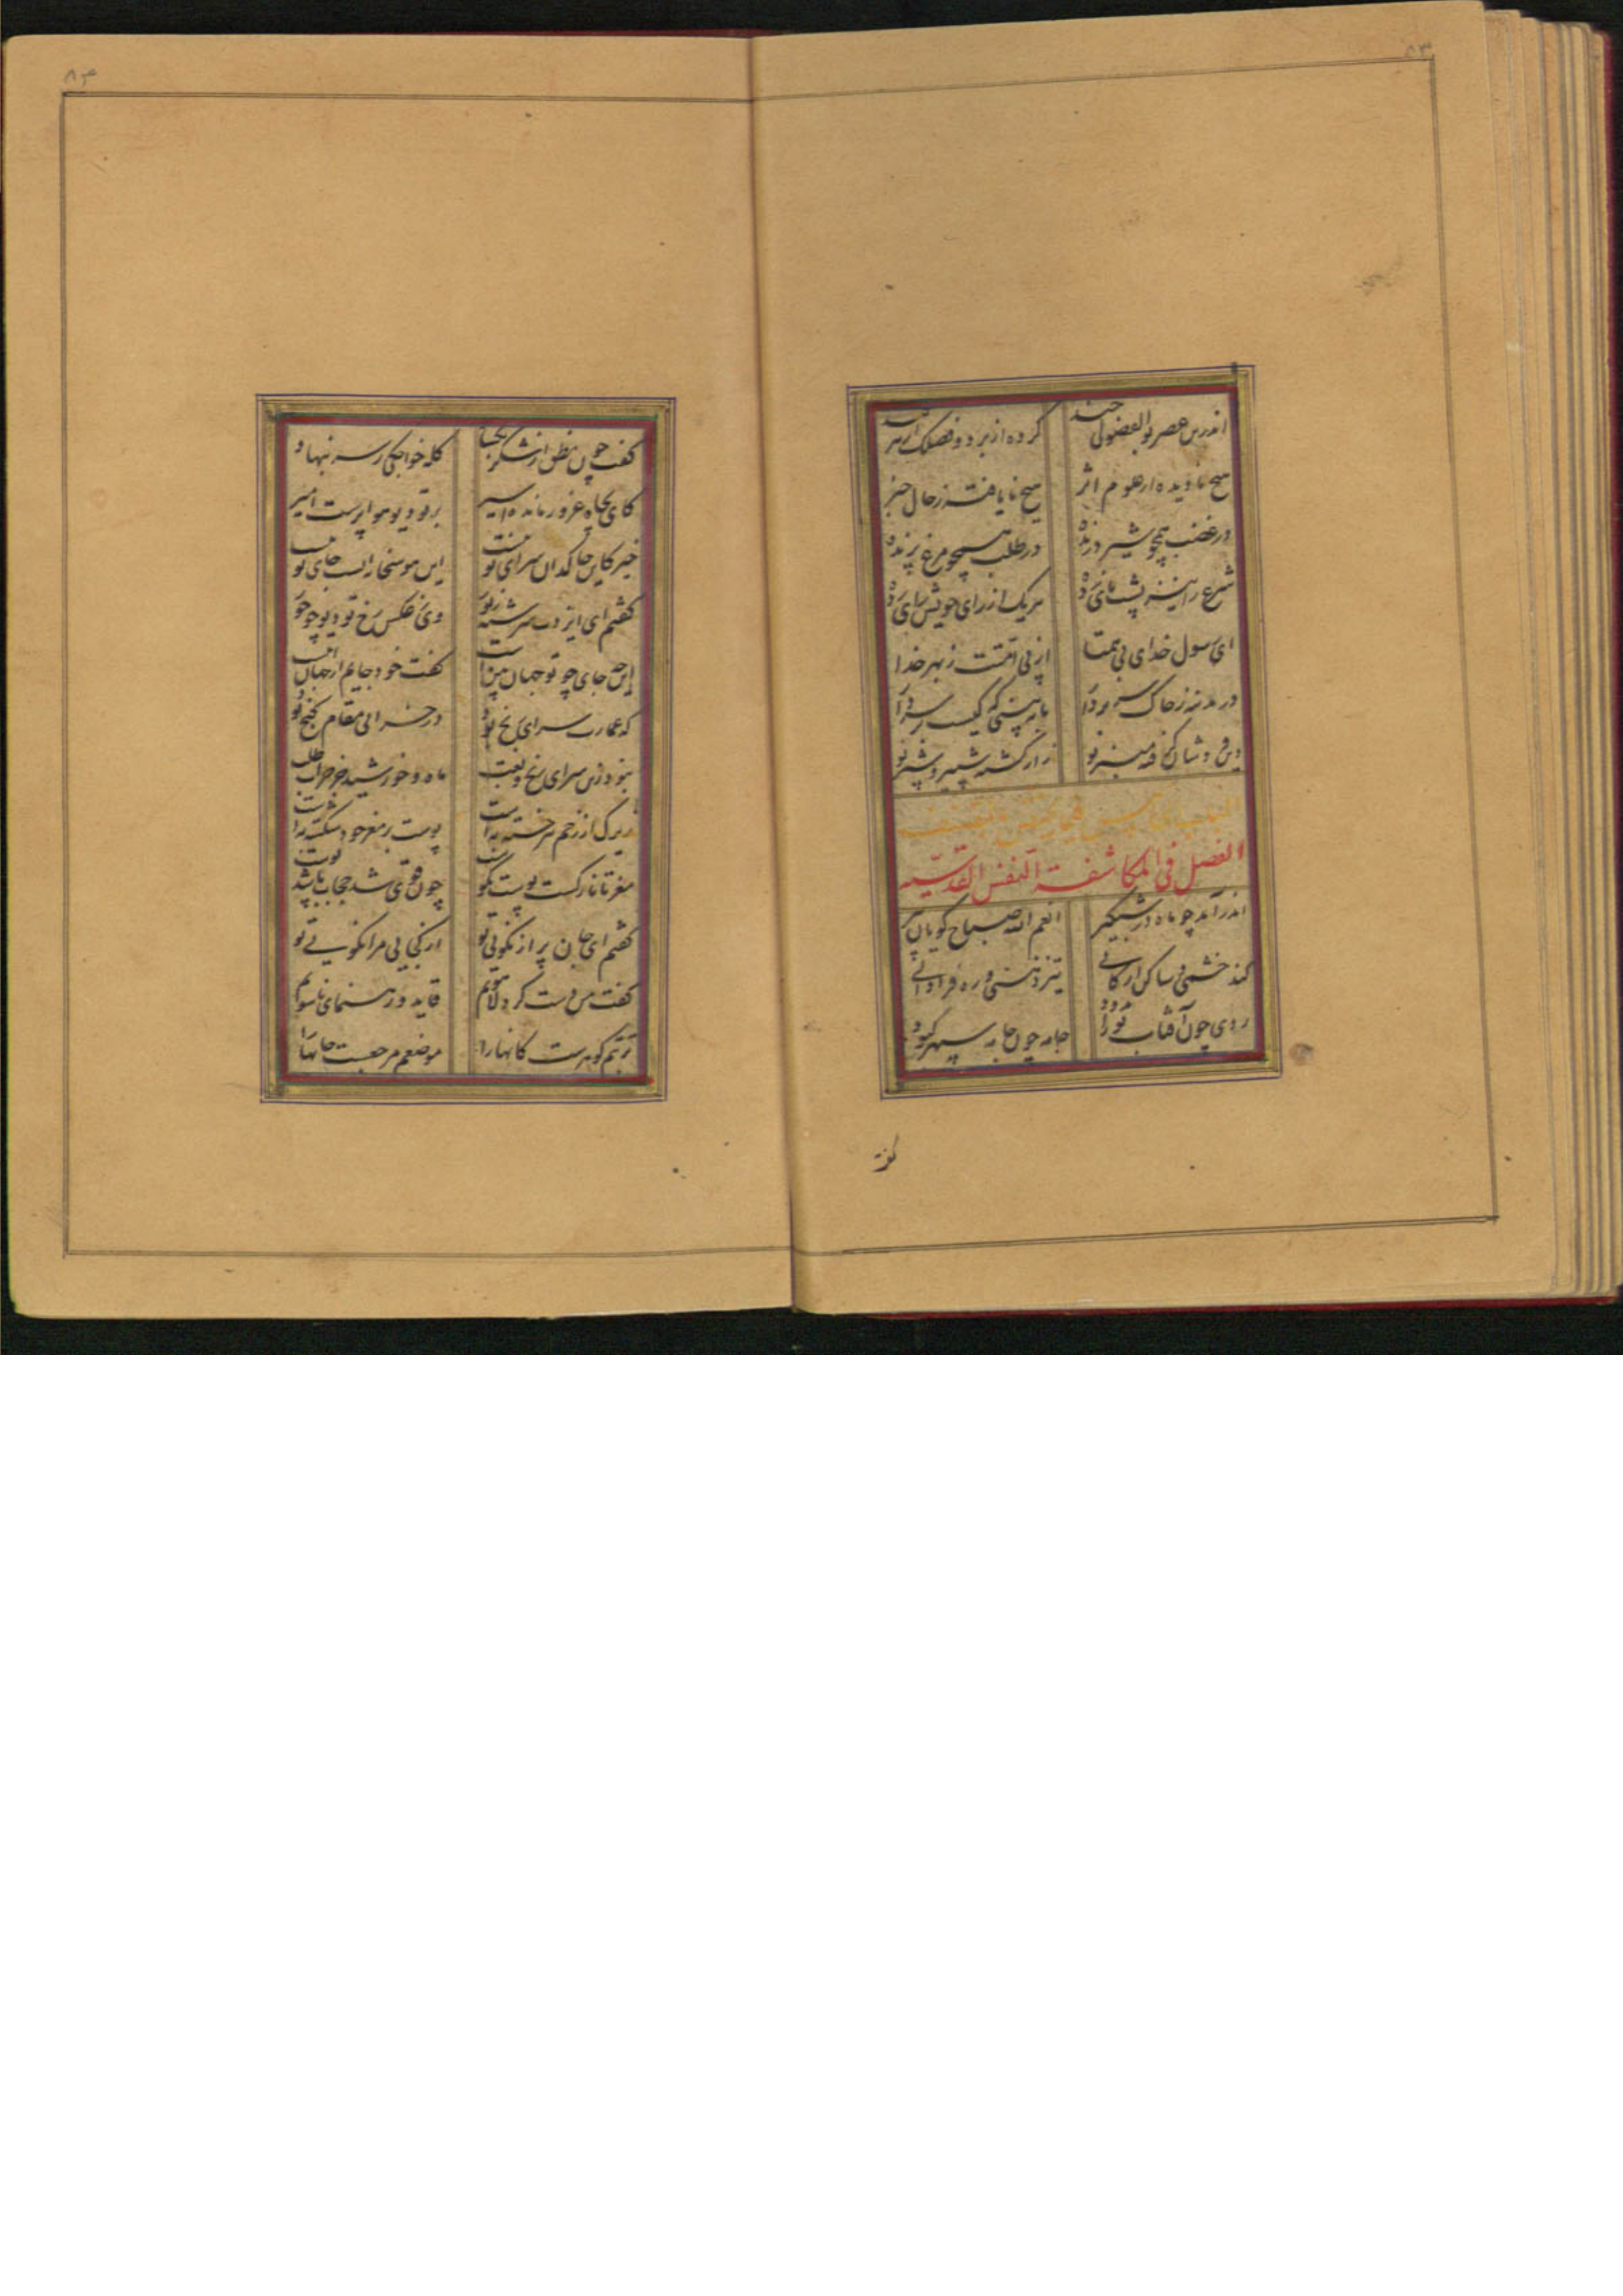 ۸۳
اندرین عصر بوالفضولی چند کرده از بر دو فصلک از بر
هیچ نادیده از علوم اثر هیچ نایافته ز حال خبر
در غضب همچو شیر درنده در طلب همچو مرغ پرنده
شرع را نیز پشت پای زده هر یک از رای خویش رای زده
ای رسول خدای بی همتا از پی امتت ز بهر خدا
در مدینه ز خاک سر بردار تا ببینی که کیست بر سر دار
دین فروشان گرفته منبر تو زار کشته شبیر و شبر تو
الفصل فی المکاشفة النفس القدسیه
اندر آمد چو ماه در شبگیر انعم الله صباح گویان پیر
کند خشمی و ساکن ارکانی تیز ذهنی و ره فرادانی
روی چون آفتاب نوراندود جامه چون جامهٔ سپهر کبود
گفت
۸۴
گفت چون منطق از شکر بگشاد کله خواجگی ز سر بنهاد
کای بچاه غرور مانده اسیر بر تو دیو هوا پرست امیر
خیز کاین خاکدان سرای تو نیست این هوسخانه است جای تو نیست
گفتم ای ایزدت سرشته ز نور وی ز عکس رخ تو دیو چو حور
این چه جای چو تو جهان بین است گفت خود جایم از جهان این است
که عمارت سرای رنج بود در خرابی مقام گنج بود
نبود در سرای رنج و تعب ماه و خورشید جز خراب طلب
زیرک از زخم هر خسته بدست پوست بر مغز خود شکسته بدست
مغز تا نازکست پوست نکوست چون قوی شد حجاب باشد پوست
گفتم ای جان پر از نکویی تو از کجایی مرا نگویی تو
گفت من دست گرد لاهوتم قاید و رهنمای ناسوتم
تربتم گوهرست کانها را موضعم مرجعست جانها را